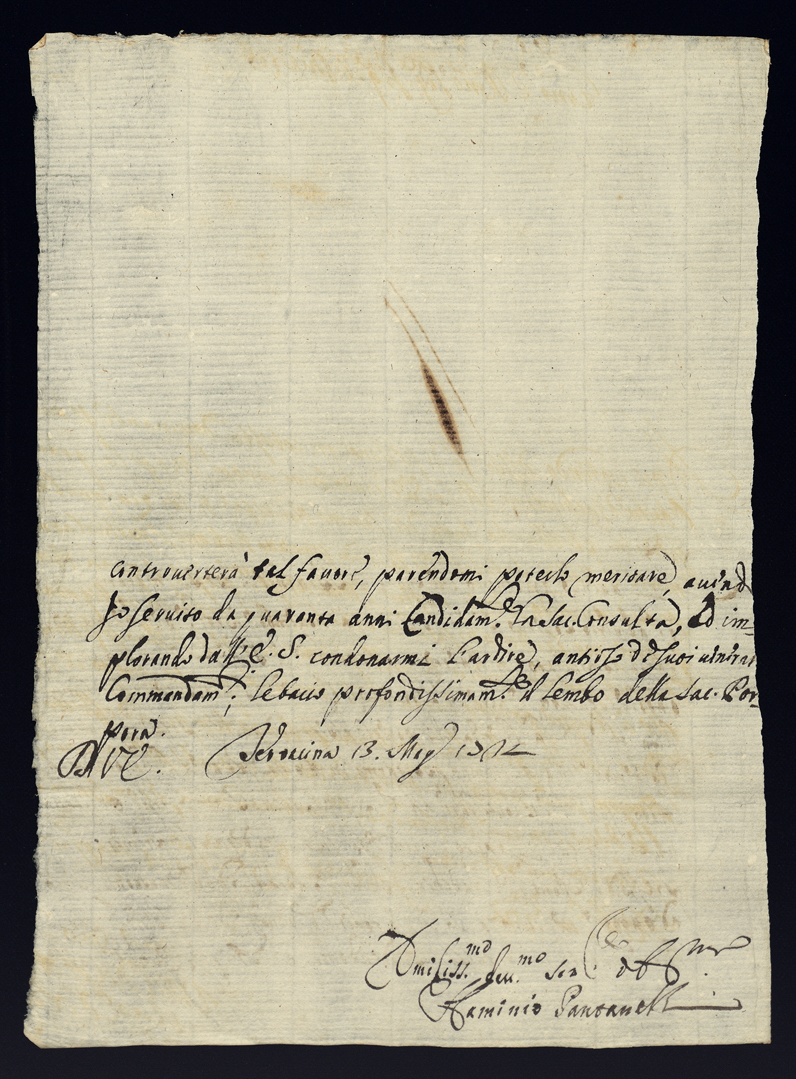 controuerterà tal fauore, parendomi poterlo meritare, auend
Io seruito da quaranta anni Candidam.te la Sac. Consulta, ed im=
plorando dall' E. S. condonarmi l'ardire, ansioso de suoi uenerat
Commandam.ti, le bacio profondissimam.te il lembo della Sac. Por=
pora.
Terracina 13. Mag
Vmiliss.mo deu.mo ser
Flaminio Pantanelli